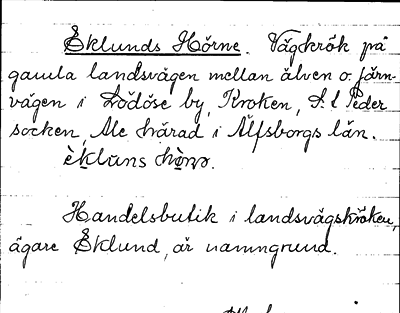 Eklunds Hörne. Vägkrök på
gamla landsvägen mellan älven o. järn-
vägen i Lödöse by, Kroken, S:t Peder
socken, Ale härad i Älfsborgs län.
Handelsbutik i landsvägskröken,
ägare Eklund, är namngrund.